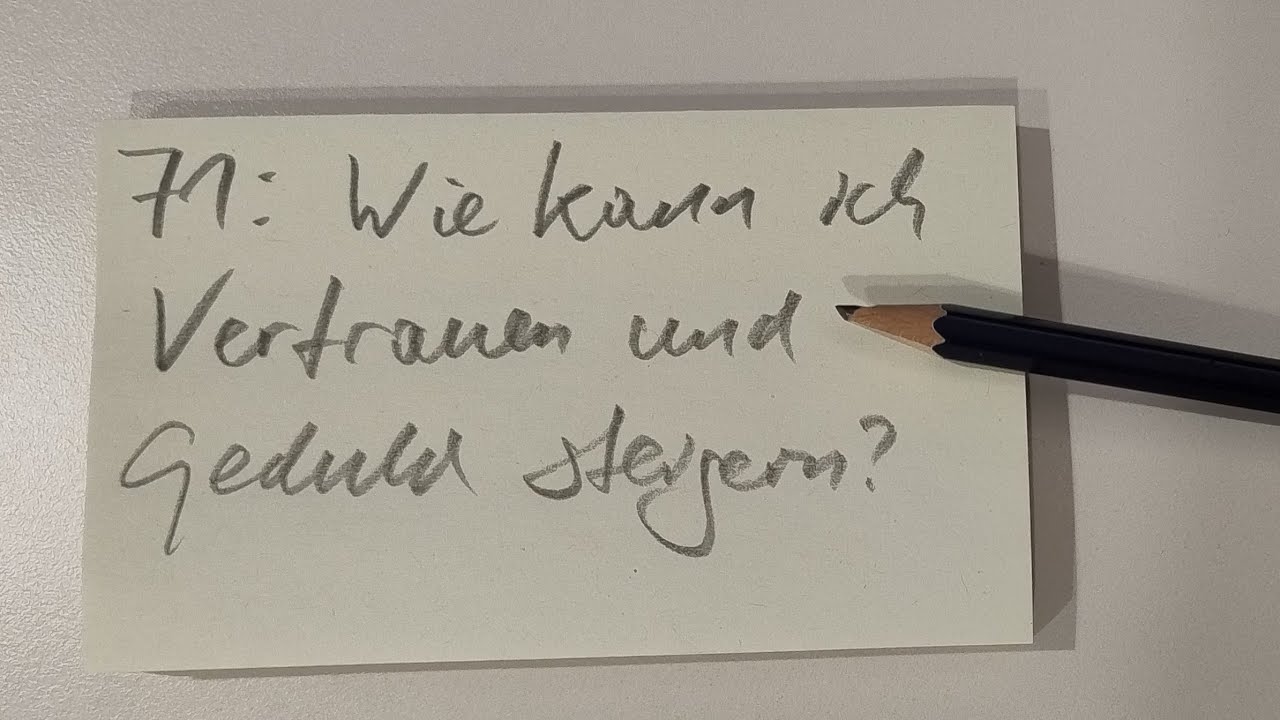 71: Wie kann ich
Vertrauen und
Geduld steigern?